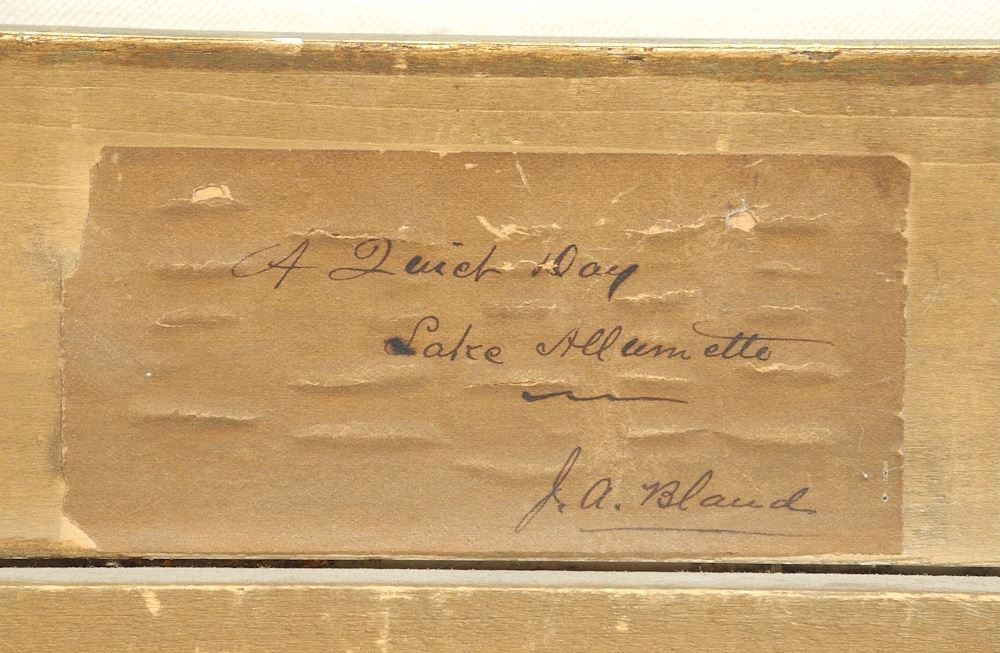 A Quiet Day
Lake Allumette
J. A. Bland